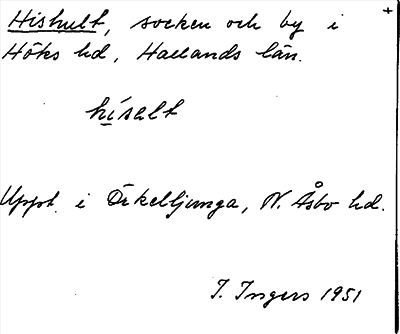 Hishult, socken och by i
Höks hd, Hallands län.
hísalt
Uppt. i Örkelljunga, N. Åsbo hd.
I. Ingers 1951